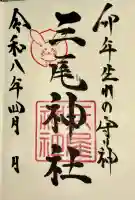 卯年生れの守神
三尾神社
令和八年四月 月